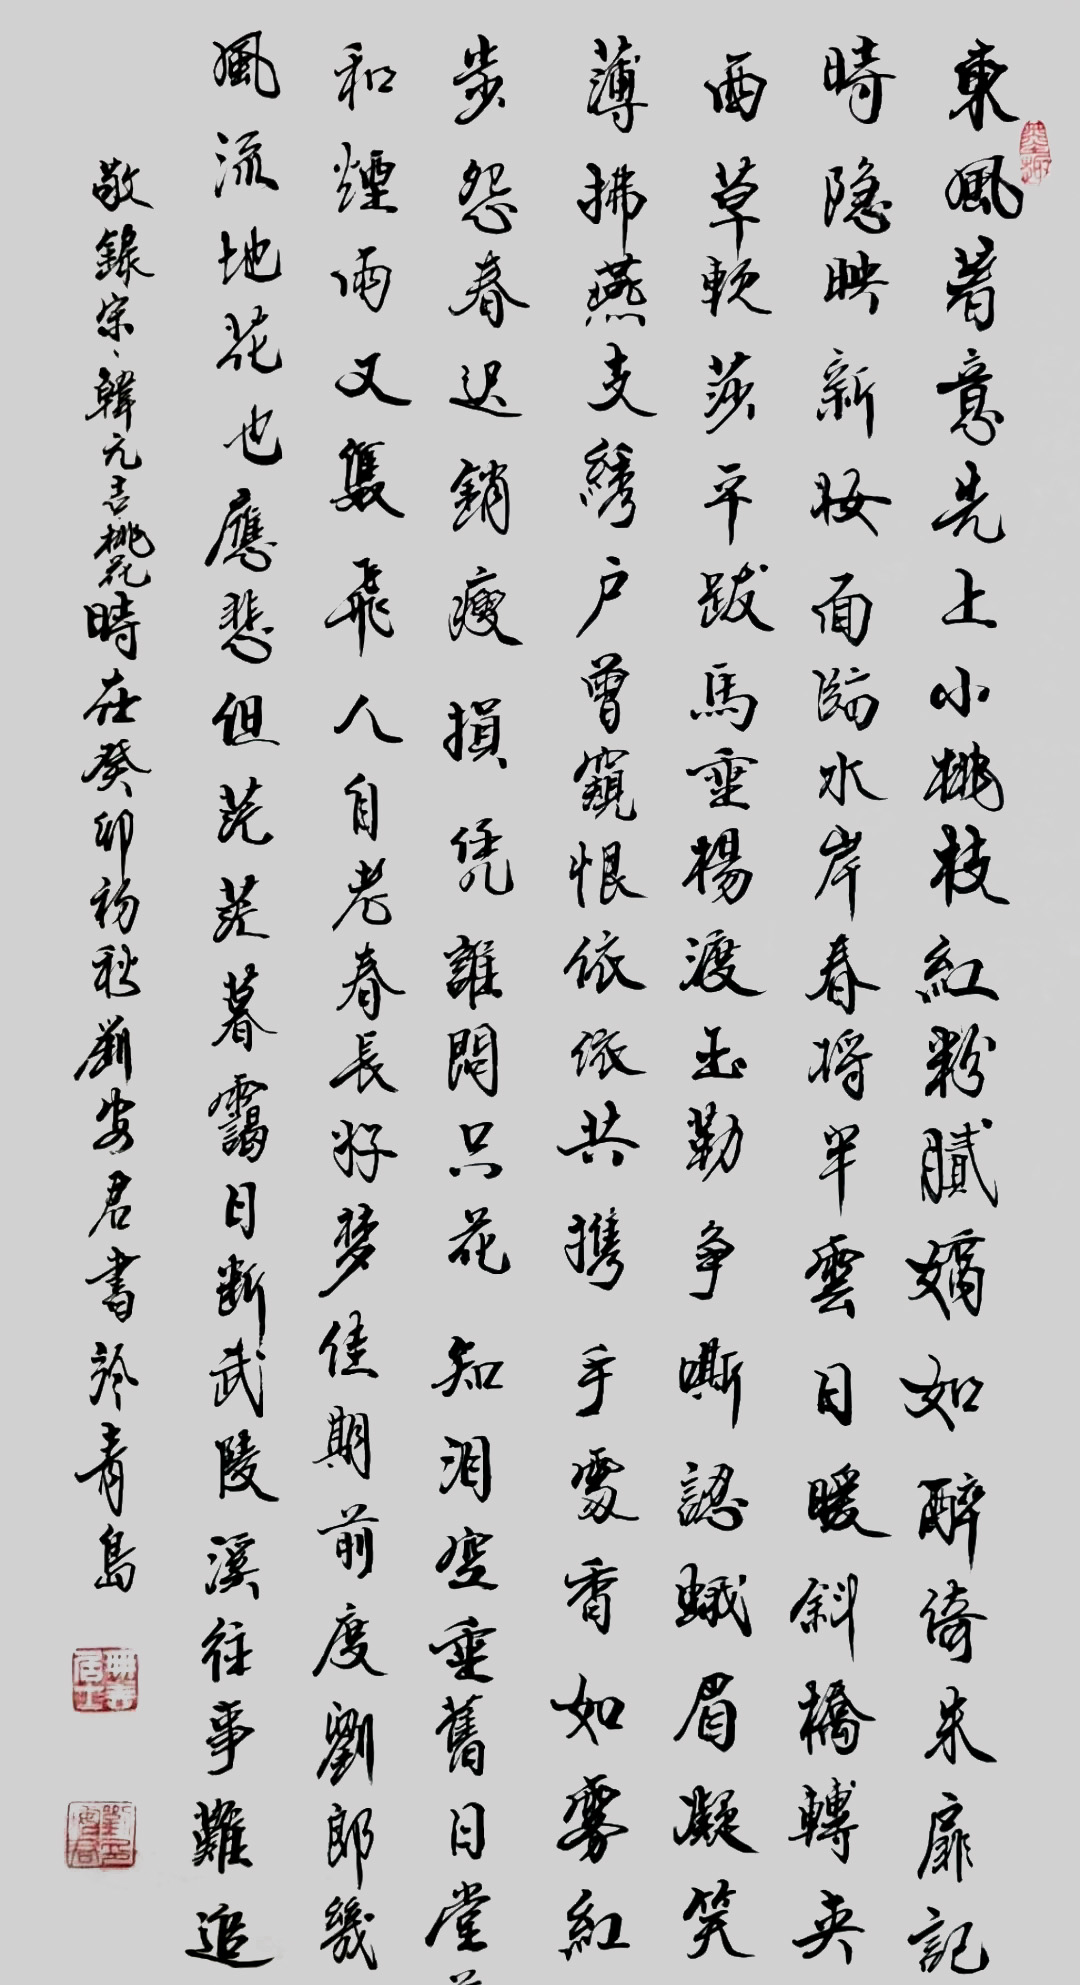 東風著意先上小桃枝紅粉膩嬌如醉倚朱扉記
時隐映新妝面臨水岸春將半雲日暖斜橋轉夹
西草軟莎平跋馬垂楊渡玉勒争嘶認蛾眉凝笑
薄拂燕支綉户曾窺恨依依共携手處香如霧紅
步怨春迟銷瘦損凭誰問只花知泪空垂舊日堂
和煙雨又雙飛人自老春長好夢佳期前度劉郎幾
風流地花也應悲但茫茫暮靄目斷武陵溪往事難追
敬錄宋、韓元吉桃花時在癸卯初秋劉安君書於青島
墨趣